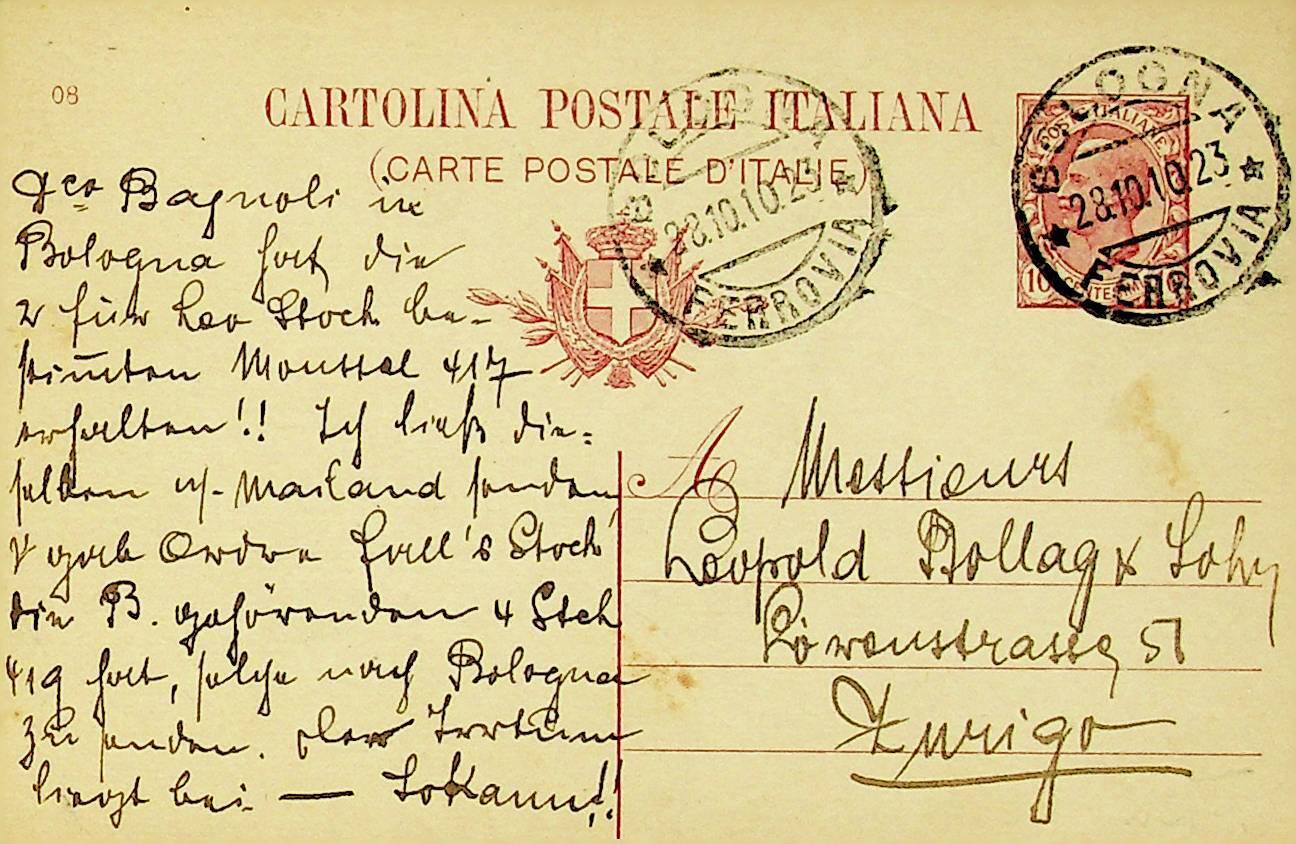 08
CARTOLINA POSTALE ITALIANA
(CARTE POSTALE D'ITALIE)
BOLOGNA
28.10.10.23
FERROVIA
BOLOGNA
28.10.10.23
FERROVIA
10
Fco Bagnoli in
Bologna hat die
2 für Leo Stock be-
stim̄ten Moussel 417
erhalten!! Ich ließ die=
selben n/- Mailand senden,
& gab Ordre fall's Stock
die B. gehörenden 4 Stck
419 hat, solche nach Bologna
zu senden. Der Irrtum
liegt bei —
A Messieurs
Leopold Bollag & Sohn
Löwenstrasse 51
Zurigo